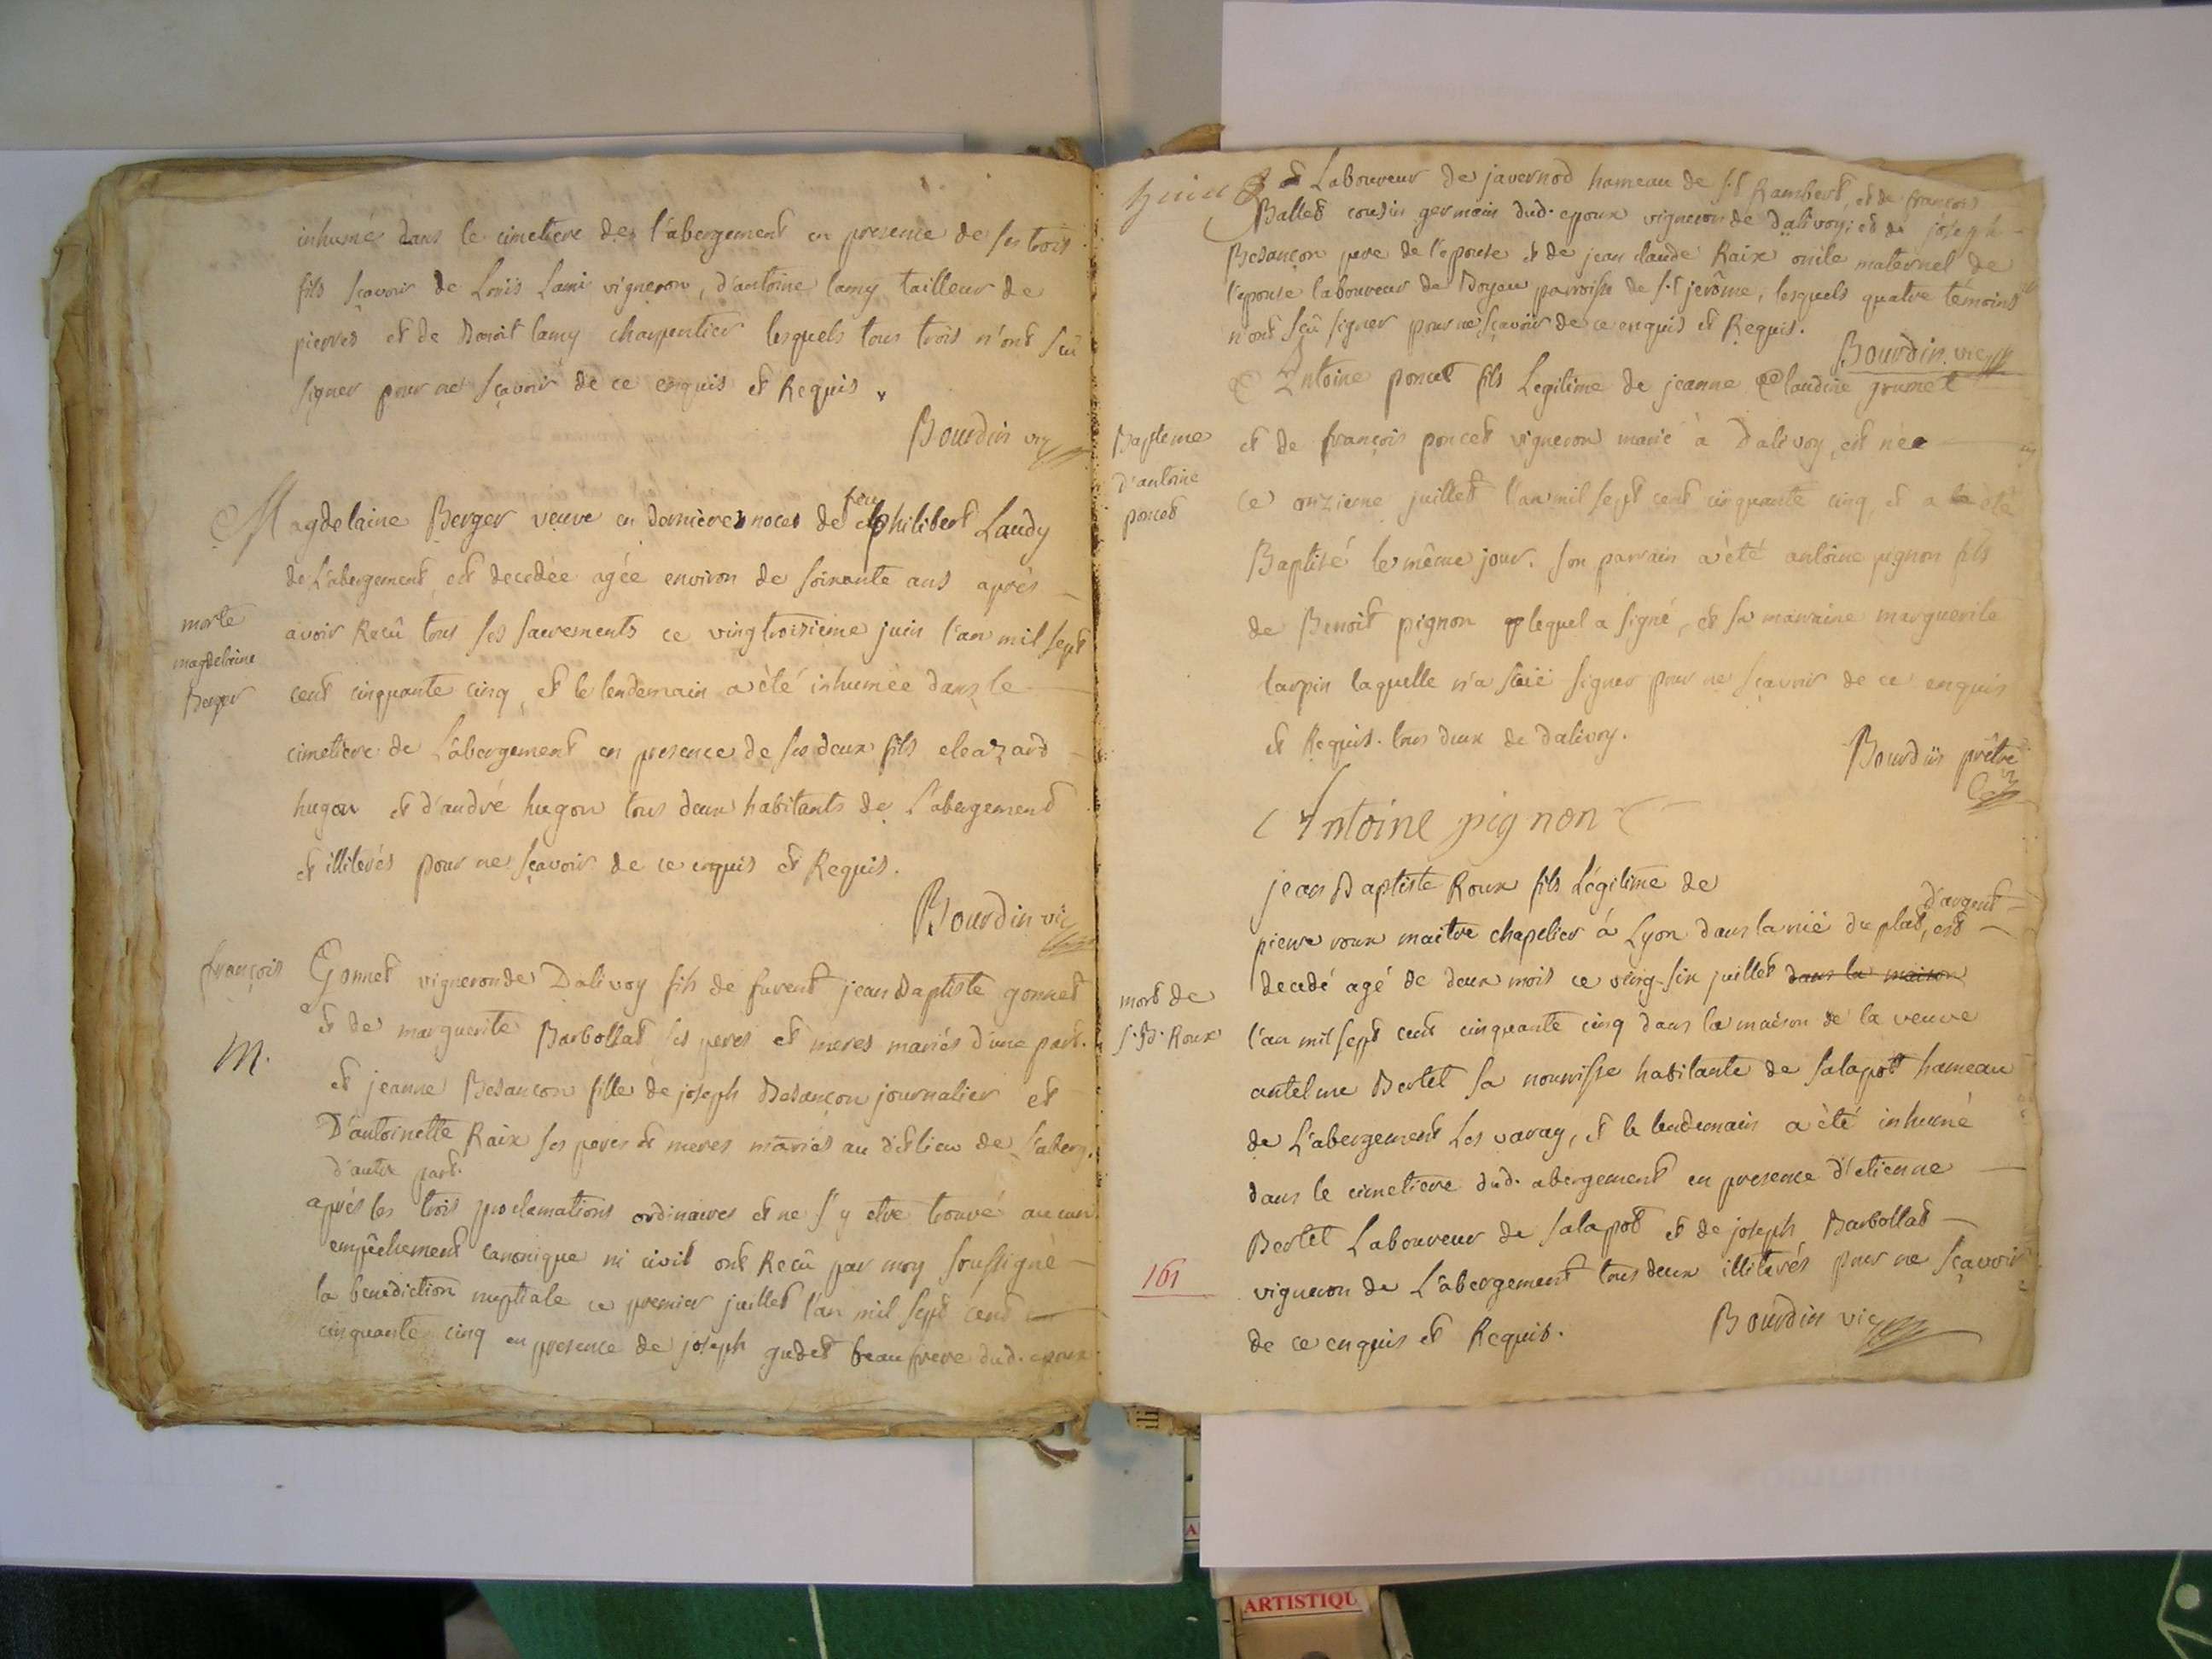 inhumé dans le cimetiere de l'abergement en presence de ses trois
fils sçavoir de Loüis Lami vigneron, d'antoine lamy tailleur de
pierres et de Benoit lamy charpentier lesquels tous trois n'ont sçû
signer pour ne sçavoir de ce enquis et Requis.
Bourdin vic
Magdelaine Berger veuve en dernieres noces de feu philibert Landy
de L'abergement, est decedée agée environ de soixante ans aprés
morte
magdelaine
Berger
avoir Reçû tous ses sacrements ce vingtroizieme juin l'an mil sept
cent cinquante cinq, et le lendemain a èté inhumèe dans le
cimetiere de L'abergement en presence de ses deux fils eleazard
hugon et d'andré hugon tous deux habitants de L'abergement
et illiterés pour ne sçavoir de ce enquis et Requis.
Bourdin vic
françois Gonnet vigneron de Dalivoy fils de furent jean Baptiste gonnet
M.
et de marguerite Barbollat ses peres et meres mariés d'une part.
et jeanne Besançon fille de joseph Besançon journalier et
D'antoinette Raix ses peres et meres mariés au dit lieu de L'aberg.
d'autre part.
aprés les trois proclamations ordinaires et ne s'y etre trouvé aucun
empêchement canonique ni civil ont Reçû par moy soussigné
la benediction nuptiale ce premier juillet l'an mil sept cent
cinquante cinq en presence de joseph gudet beaufrere dud. epoux
et Laboureur de javernod hameau de s.t Rambert, et de françois
Ballet cousin germain dud. epoux vigneron de Dalivoy; et de joseph
Besançon pere de l'epouse et de jean claude Raix oncle maternel de
l'epouse laboureur de Boyeu parroisse de s.t jerôme, lesquels quatre témoins
n'ont sçû signer pour ne sçavoir de ce enquis et Requis.
Bourdin vic
Antoine poncet fils Legitime de jeanne Claudine grumet
Bapteme
d'antoine
poncet
et de françois poncet vigneron marié à Dalivoy, est né
ce onzieme juillet l'an mil sept cent cinquante cinq, et a èté
Baptisé le même jour. son parrain a èté antoine pignon fils
de Benoit pignon lequel a signé, et sa marraine marguerite
tarpin laquelle n'a sçû signer pour ne sçavoir de ce enquis
et Requis. tous deux de dalivoy.
Bourdin prêtre
Antoine pignon
jean Baptiste Roux fils Légitime de
pierre roux maitre chapelier à Lyon dans la ruë du plat d'argent, est
decedé agé de deux mois ce vingt-six juillet dans la maison
mort de
j. B. Roux
l'an mil sept cent cinquante cinq dans la maison de la veuve
antelme Bertet sa nourrisse habitante de salapot hameau
de L'abergement Les varay, et le lendemain a èté inhumé
dans le cimetiere dud. abergement en presence d'etienne
Bertet Laboureur de salapot et de joseph Barbollat
161
vigneron de L'abergement tous deux illiterés pour ne sçavoir
de ce enquis et Requis.
Bourdin vic
ARTISTIQU